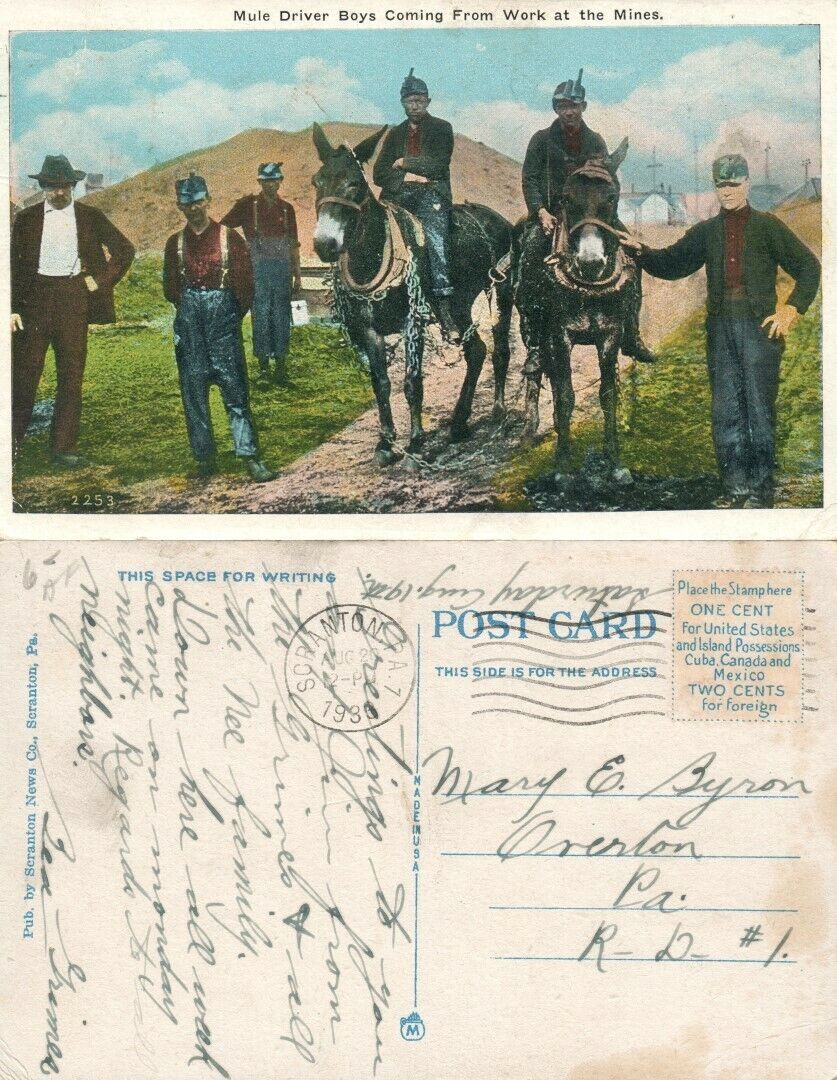 Mule Driver Boys Coming From Work at the Mines.
2253
THIS SPACE FOR WRITING
Saturday Aug. 19
POST CARD
THIS SIDE IS FOR THE ADDRESS
Place the Stamp here
ONE CENT
For United States
and Island Possessions
Cuba, Canada and
Mexico
TWO CENTS
for Foreign
SCRANTON, PA. 7
AUG 2
2-P
1930
Greetings to you
from
the Grimes & all
the Nee family.
Down here all week
came on monday
night. Regards to all
neighbors.
Grimes
Pub. by Scranton News Co., Scranton, Pa.
MADE IN USA
M
Mary E. Byron
Overton
Pa.
R-D- #1.